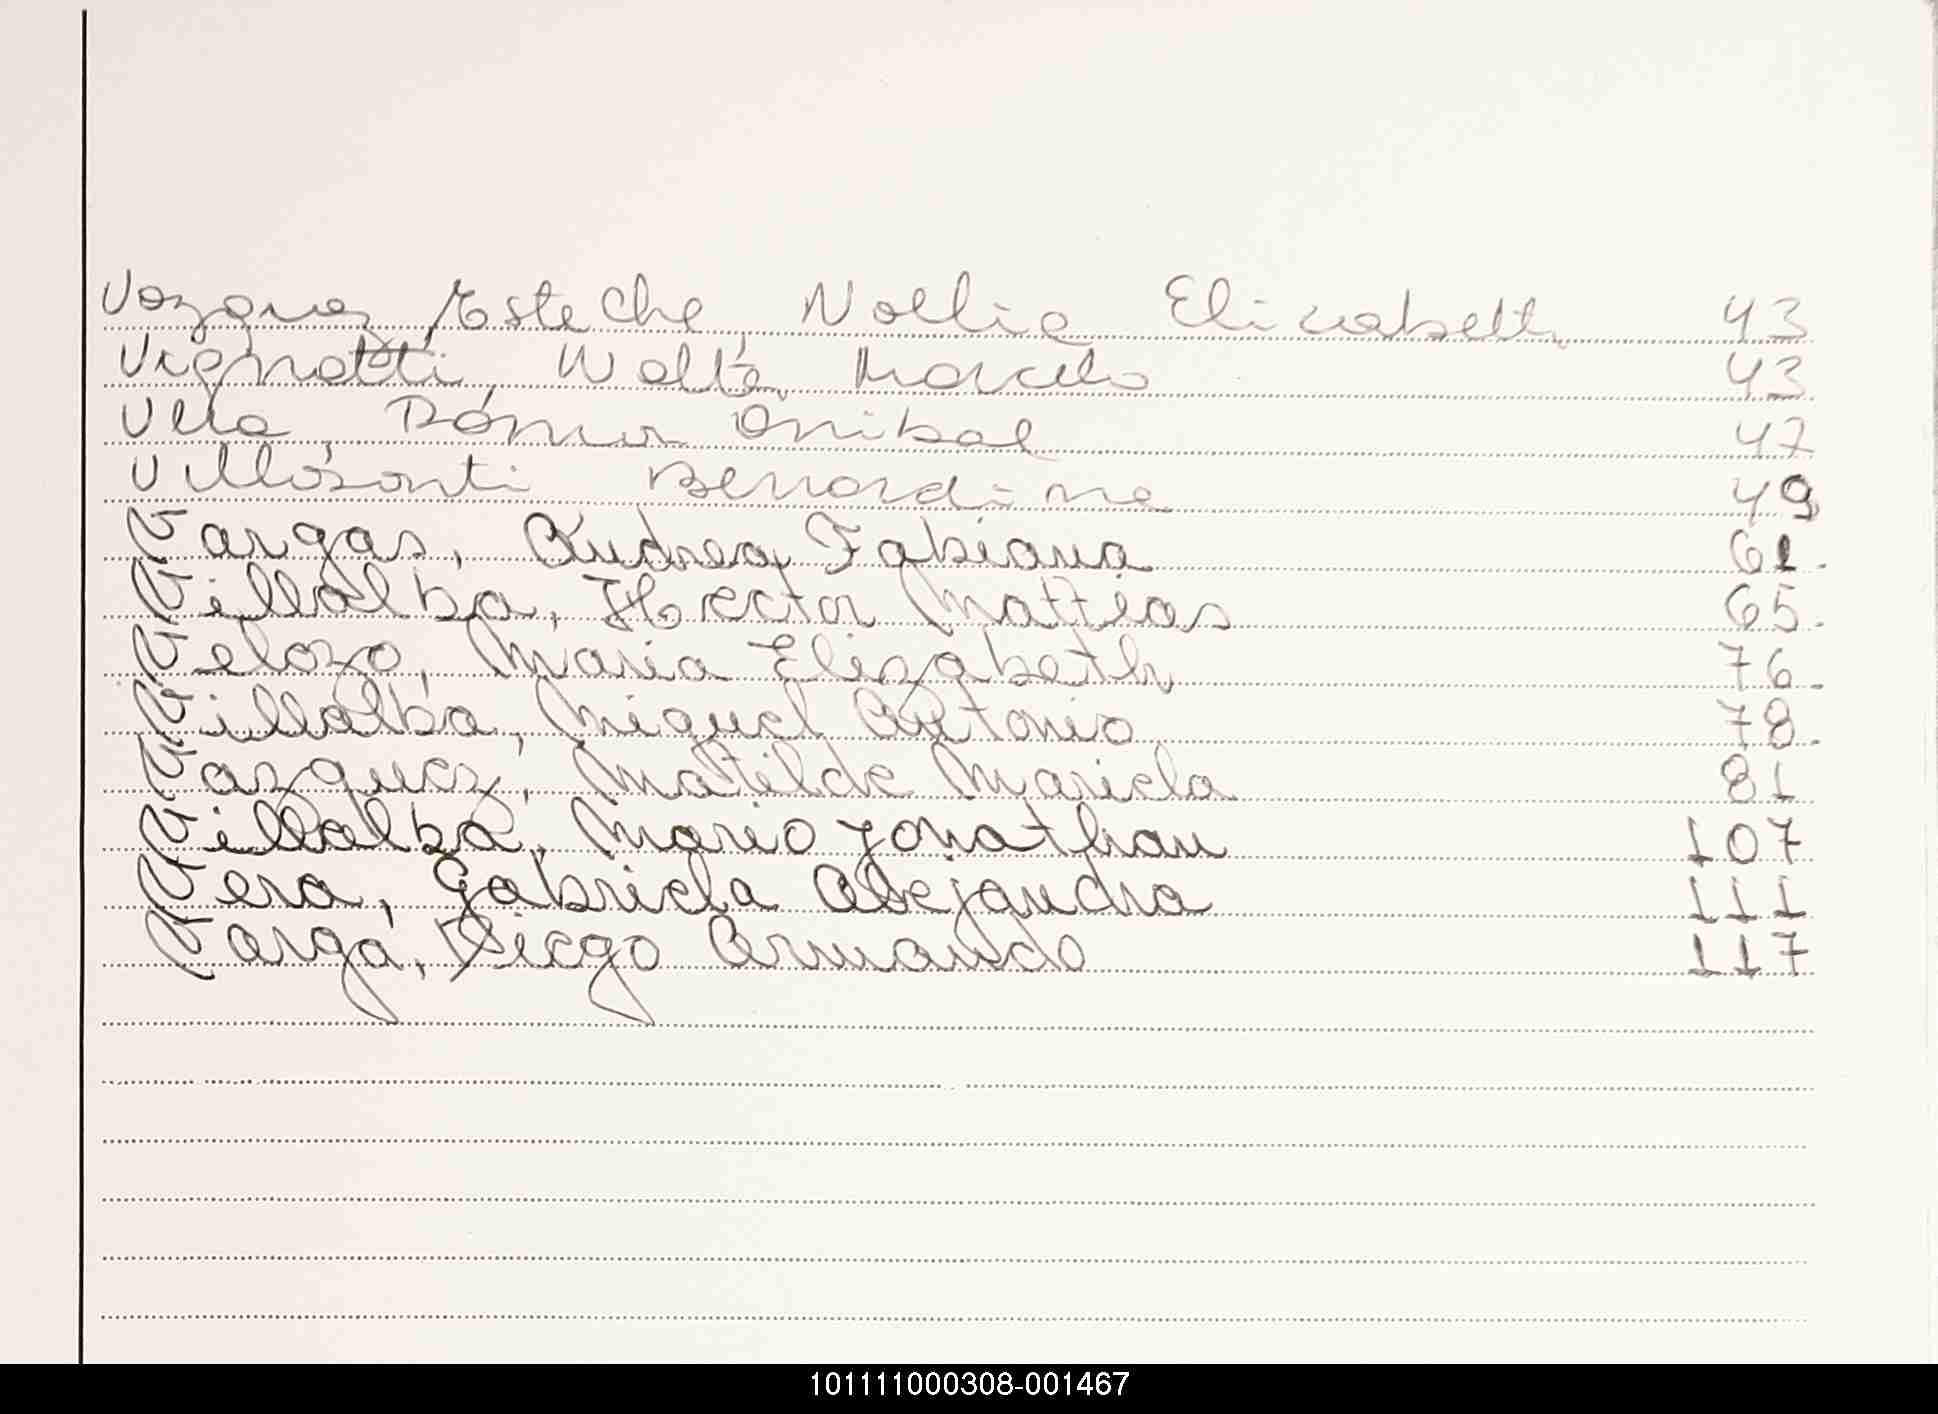 Vazquez Esteche, Noelia Elizabeth 43
Vignatti, Walte, Marcelo 43
Villa, Anibal 47
Villasanti Bernardine 49
Vargas, Andrea Fabiana 61.
Villalba, Hector Mattias 65.
Velozo, Maria Elizabeth 76.
Villalba, Miguel Antonio 78.
Vazquez, Matilde Mariela 81
Villalba, Mario Jonathan 107
Vera, Gabriela Alejandra 111
Varga, Diego Armando 117
101111000308-001467